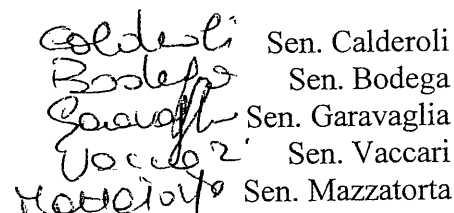 Calderoli Sen. Calderoli
Bodega Sen. Bodega
Garavaglia Sen. Garavaglia
Vaccari Sen. Vaccari
Mazzatorta Sen. Mazzatorta